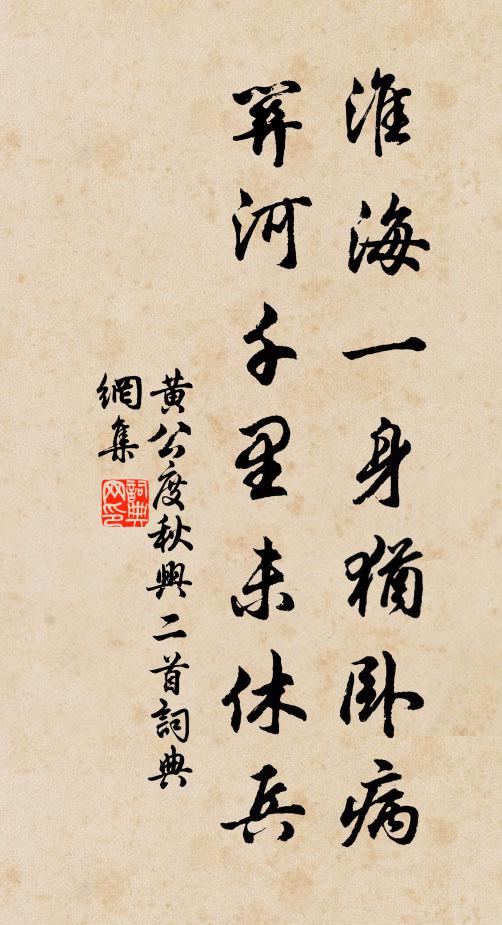 淮海一身猶卧病
關河千里未休兵
黄公度秋興二首詞典
網集
詞典
网印